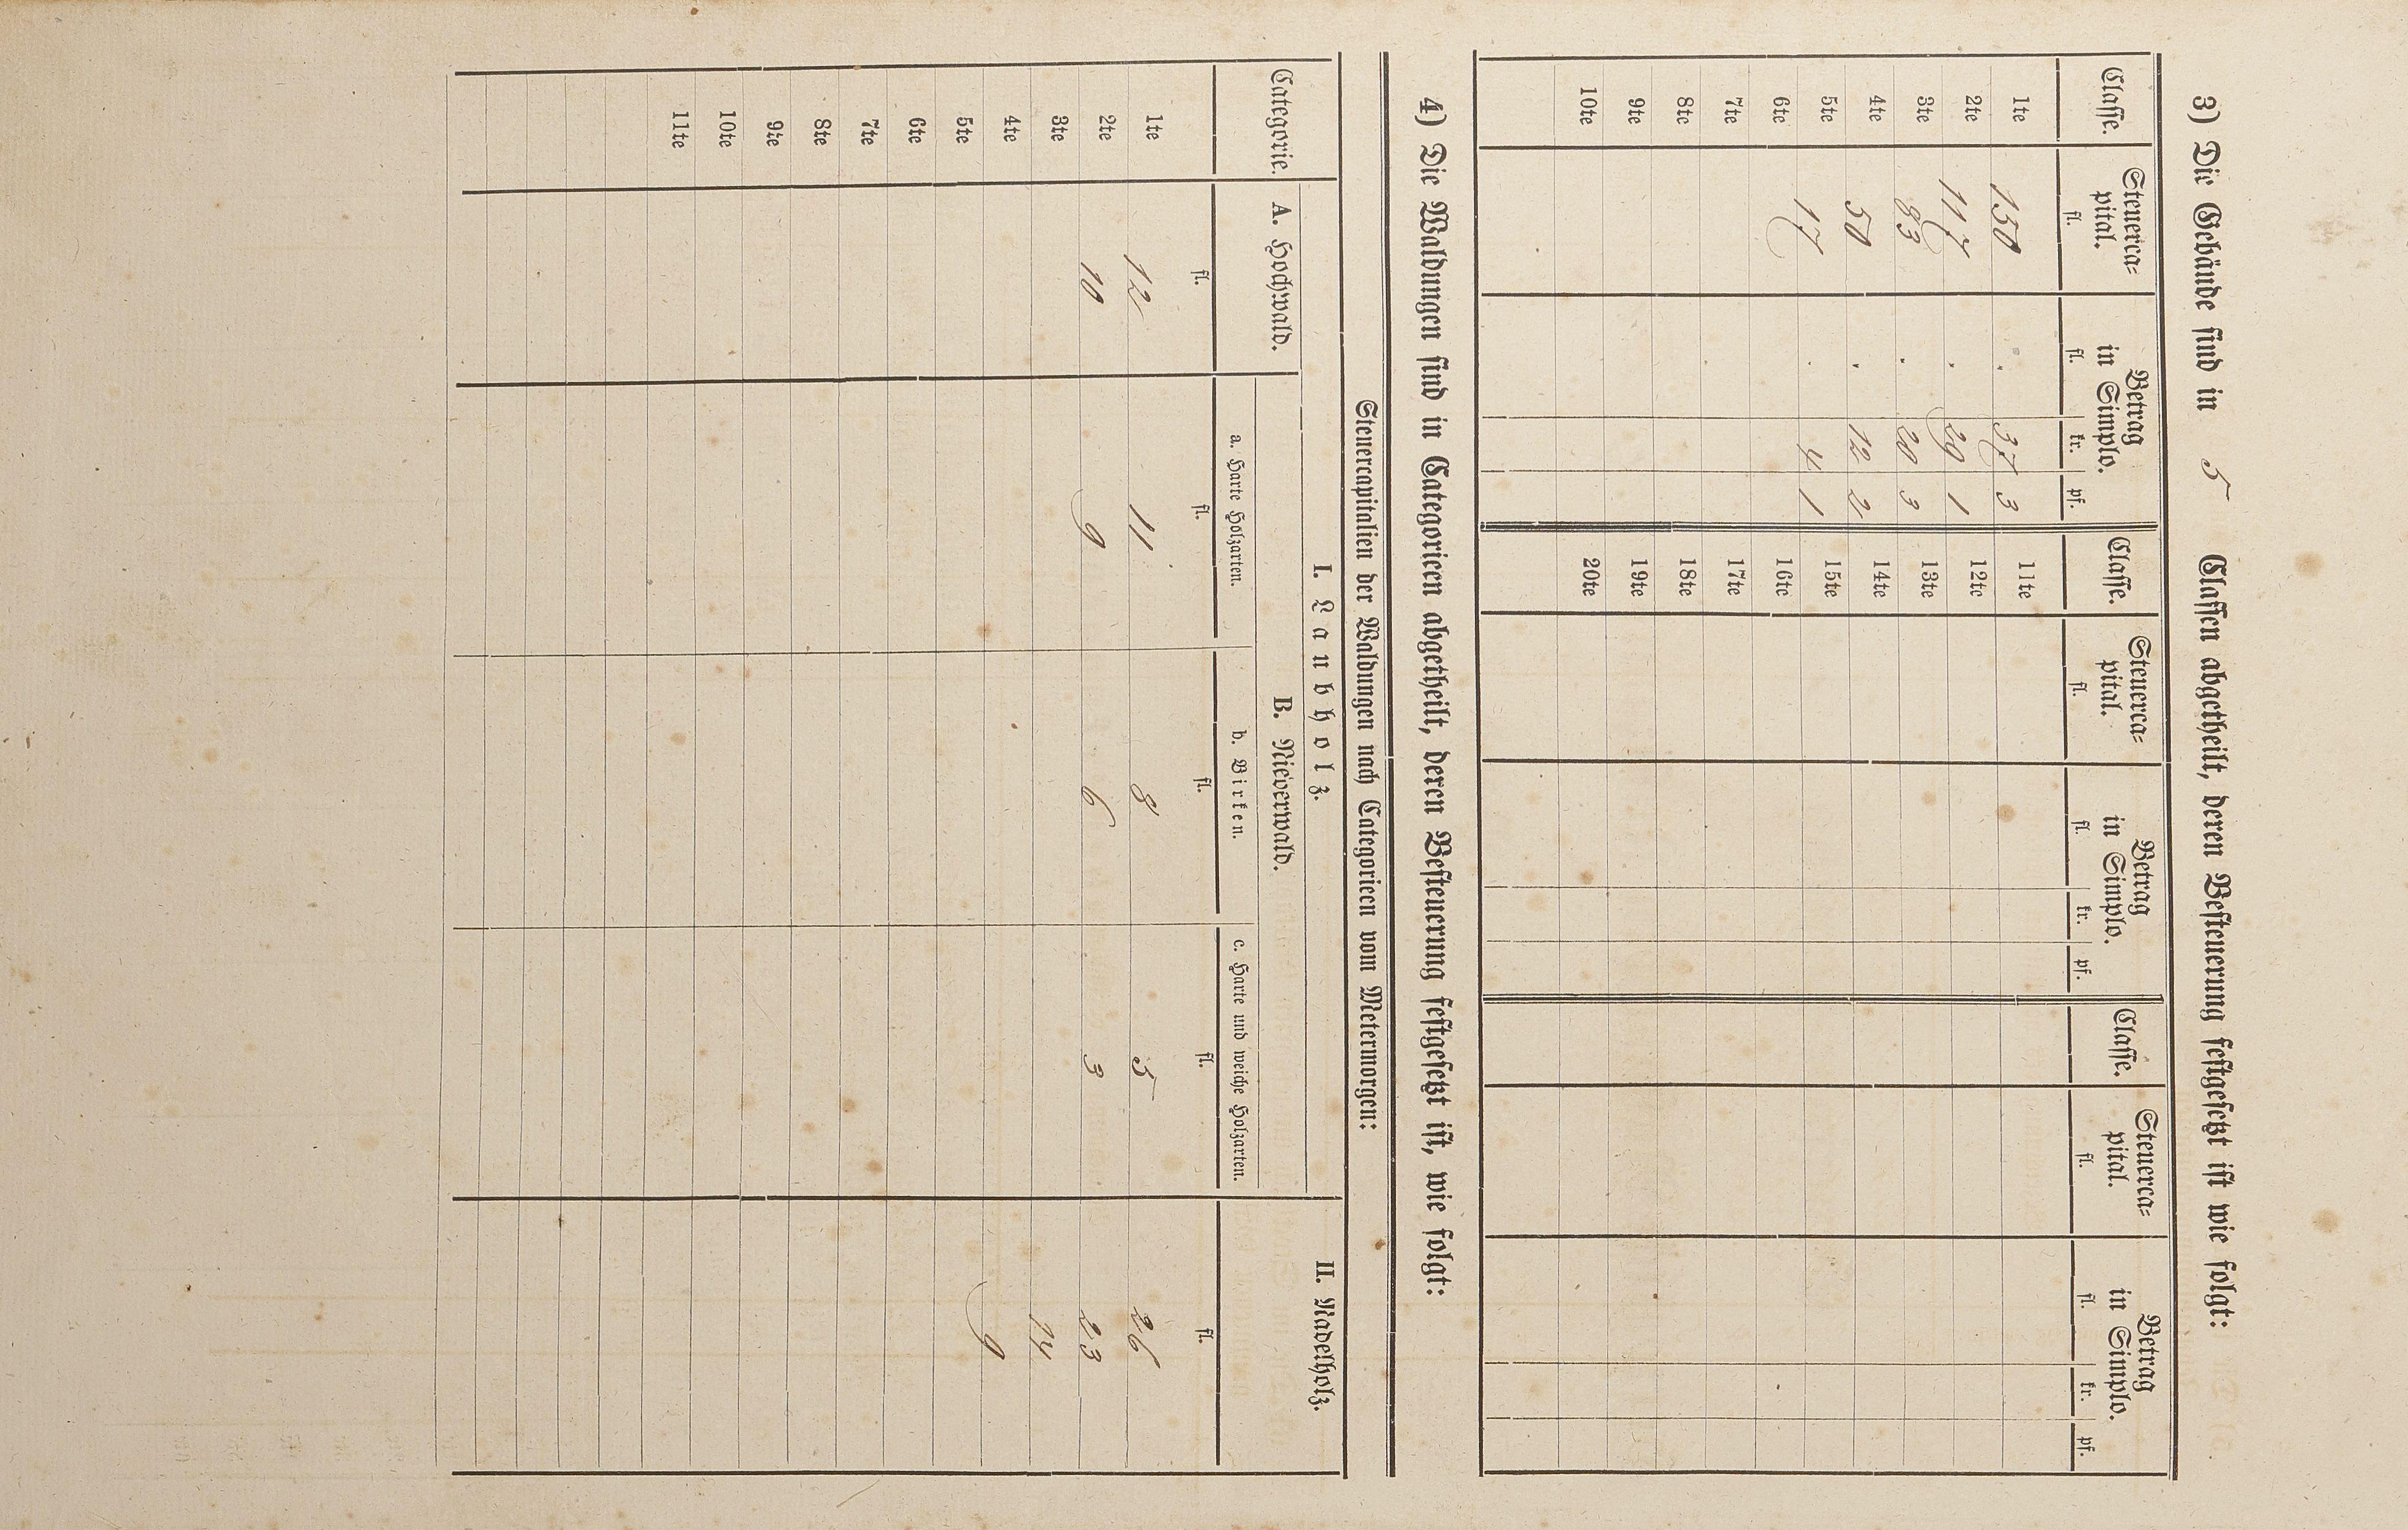 3) Die Gebäude sind in 5 Classen abgetheilt, deren Besteuerung festgesetzt ist wie folgt:
Classe. Steuerca- Betrag Classe. Steuerca- Betrag Classe. Steuerca- Betrag
pital. in Simplo. pital. in Simplo. pital. in Simplo.
fl. fl. kr. pf. fl. fl. kr. pf. fl. fl. kr. pf.
1te 150 . 37 3 11te
2te 117 . 29 1 12te
3te 83 . 20 3 13te
4te 50 . 12 2 14te
5te 17 . 4 1 15te
6te 16te
7te 17te
8te 18te
9te 19te
10te 20te
4) Die Waldungen sind in Categorieen abgetheilt, deren Besteuerung festgesetzt ist, wie folgt:
Steuercapitalien der Waldungen nach Categorieen vom Metermorgen:
I. Laubholz. II. Nadelholz.
Categorie. A. Hochwald. B. Niederwald.
a. Harte Holzarten. b. Birken. c. Harte und weiche Holzarten.
fl. fl. fl. fl. fl.
1te 12 11 8 5 26
2te 10 9 6 3 23
3te 14
4te 9
5te
6te
7te
8te
9te
10te
11te